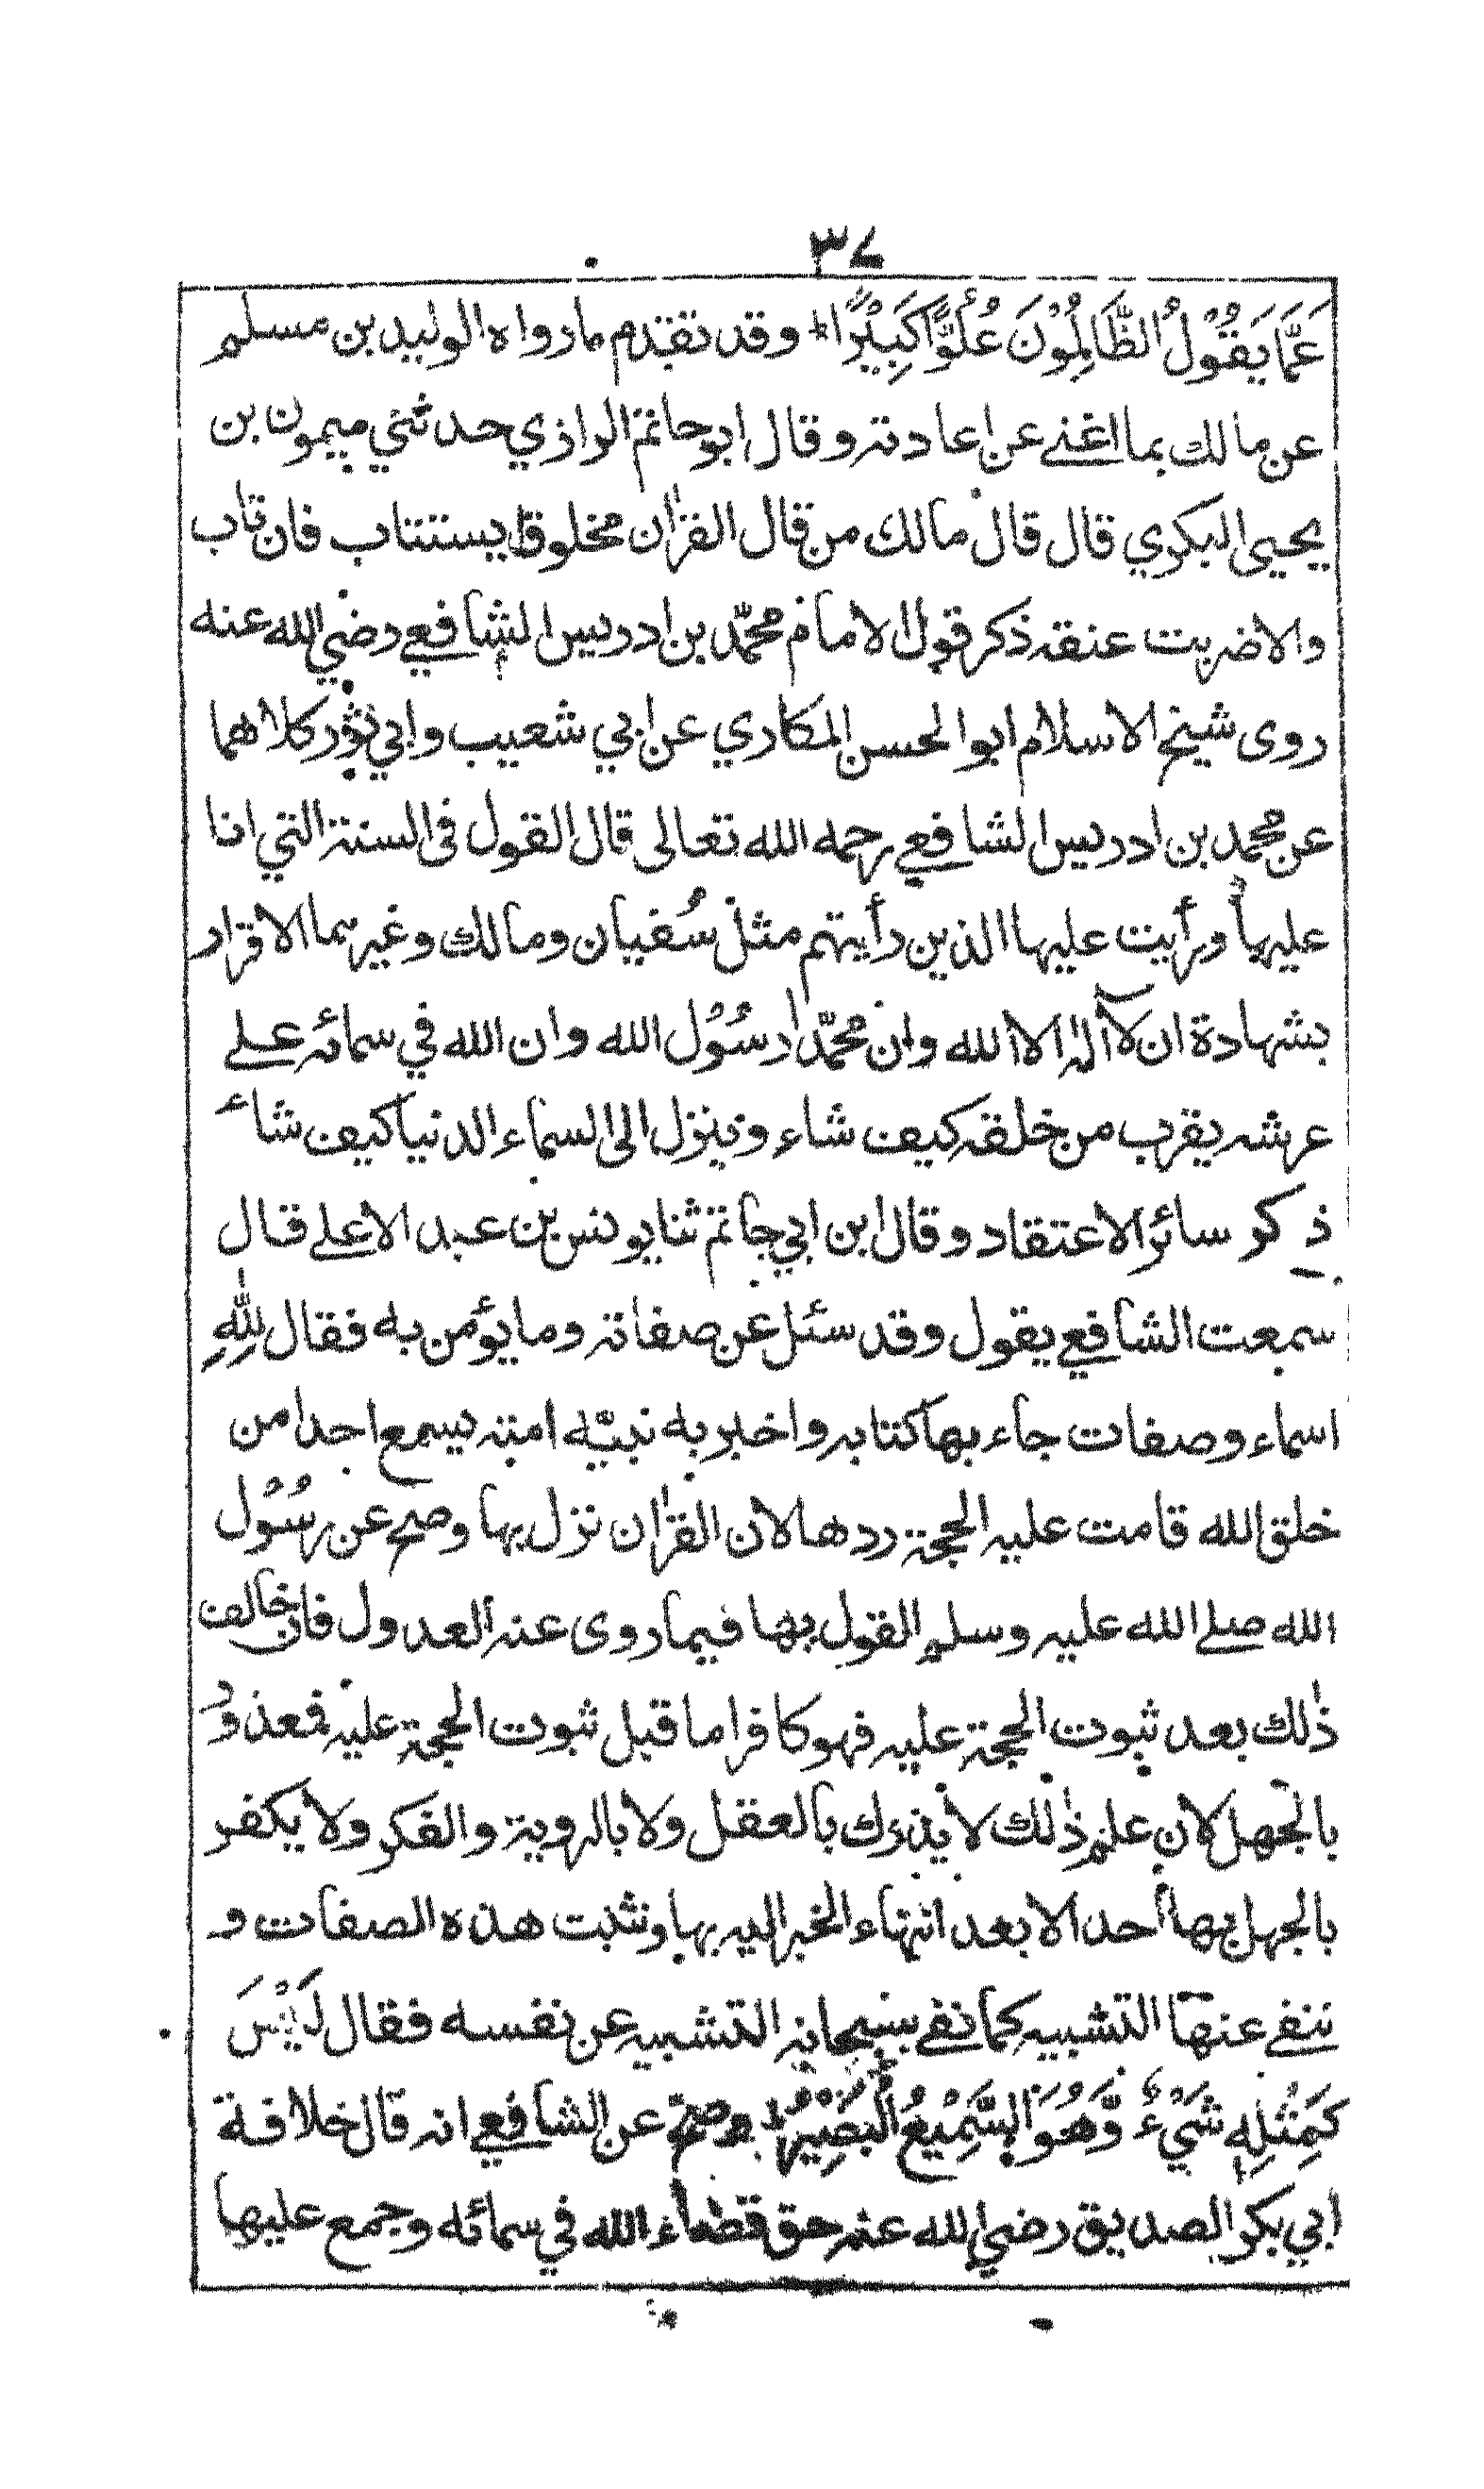 ٣٧
عَمَّا يَقُوْلُ الظَّالِمُوْنَ عُلُوًّا كَبِيْرًا ط وقد تقدم ما رواه الوليد بن مسلم
عن مالك بما اغنے عن اعادته وقال ابو حاتم الرازي حدثني ميمون بن
يحيى البكري قال قال مالك من قال القرأن مخلوق يستتاب فان تاب
والاضربت عنقه ذكر قول الامام محمّد بن ادريس الشافعے رضي الله عنه
روى شيخ الاسلام ابوالحسن الهكاري عن ابي شعيب وابي ثور كلاهما
عن محمد بن ادريس الشافعے رحمه الله تعالى قال القول فى السنة التي انا
عليها ورأيت عليها الذين رأيتهم مثل سُفيان ومالك وغيرهما الاقرار
بشهادة ان لآ اله الا الله وان محمّدا رسُوْل الله وان الله في سمائه علے
عرشه يقرب من خلقه كيف شاء وينزل الى السماء الدنيا كيف شاء
ذكر سائر الاعتقاد وقال ابن ابي حاتم ثنا يونس بن عبد الاعلے قال
سمعت الشافعے يقول وقد سئل عن صفاته وما يؤمن به فقال للهِ
اسماء وصفات جاء بها كتابه واخبر به نبيّه امته يسمع احدا من
خلق الله قامت عليه الحجة ردها لان القرأن نزل بها وصح عن رسُوْل
الله صلے الله عليه وسلم القول بها فيما روى عنه العدول فان خالف
ذلك بعد ثبوت الحجة عليه فهو كافر اما قبل ثبوت الحجة عليه فمعذور
بالجهل لان علم ذلك لا يدرك بالعقل ولا بالروية والفكر ولا يكفر
بالجهل بها احد الا بعد انتهاء الخبر اليه بها ونثبت هذه الصفات و
ننفے عنها التشبيه كما نفے سبحانه التشبيه عن نفسه فقال لَيْسَ
كَمِثْلِهِ شَيْءٌ وَّهُوَ السَّمِيْعُ الْبَصِيْرُ ط وصح عن الشافعے انه قال خلافة
ابي بكر الصديق رضي الله عنه حق قضاء الله في سمائه وجمع عليها